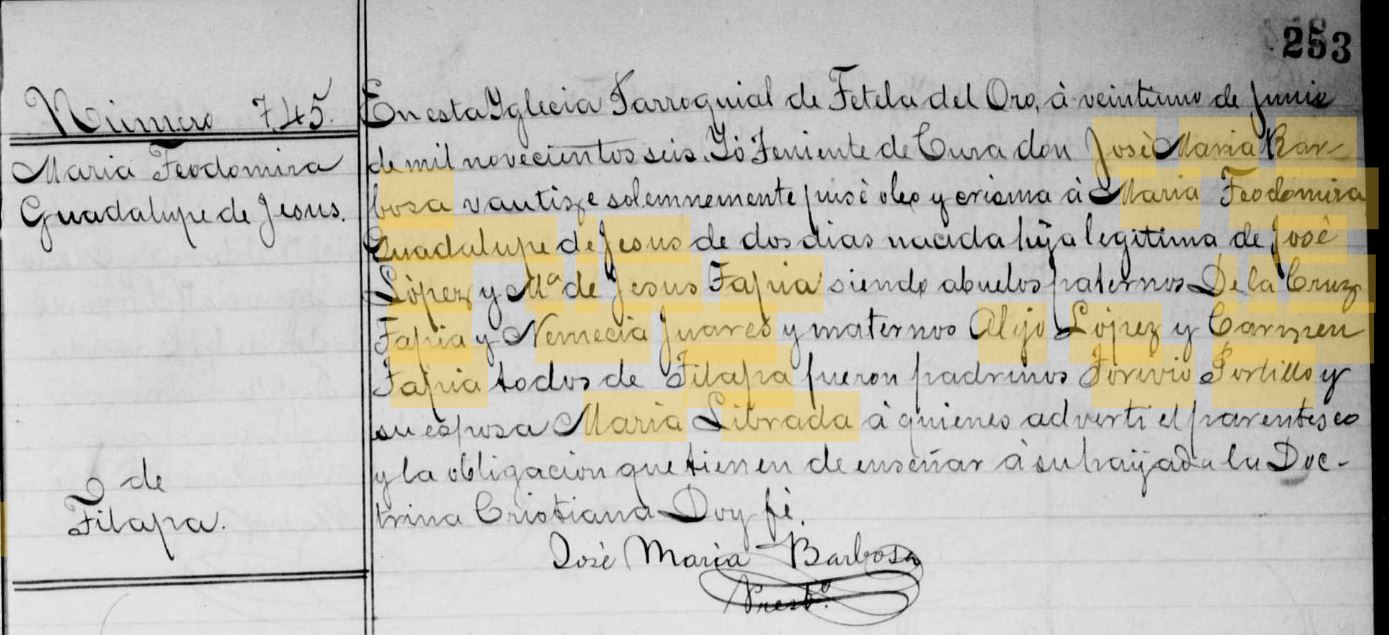 253
Número 745.
Maria Teodomira
Guadalupe de Jesus.
D de
Tilapa.
En esta Yglecia Parroquial de Tetela del Oro, à veintiuno de Junio
de mil novecientos seis. Yó Teniente de Cura don José Maria Bar-
bosa vautize solemnemente puse oleo y crisma à Maria Teodomira
Guadalupe de Jesus de dos dias nacida hija legitima de José
López y Mª de Jesus Tapia siendo abuelos paternos De la Cruz
Tapia y Nemecia Juares y maternos Alejo López y Carmen
Tapia todos de Tilapa fueron padrinos Torivio Portillo y
su esposa Maria Librada à quienes adverti el parentesco
y la obligacion que tienen de enseñar à su haijada la Doc-
trina Cristiana Doy fé.
José Maria Barbosa
Presbº.